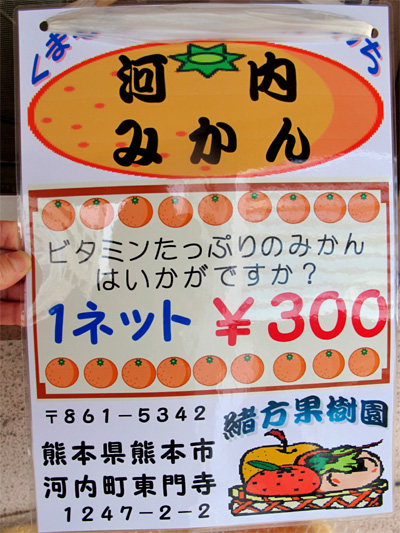 河内
みかん
ビタミンたっぷりのみかん
はいかがですか？
1ネット ￥300
〒861－5342
緒方果樹園
熊本県熊本市
河内町東門寺
1247-2-2